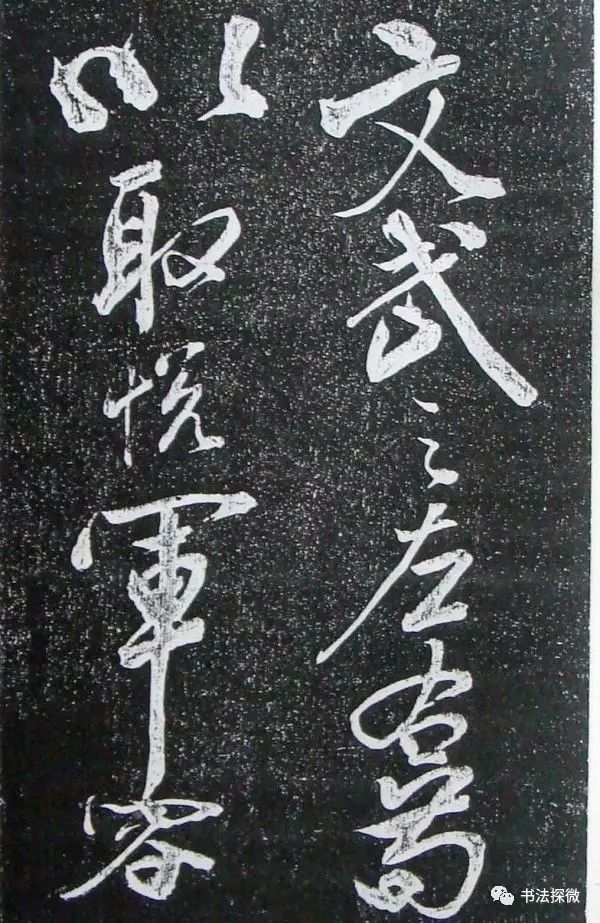 文武之左右苟
以取悅軍容
书法探微